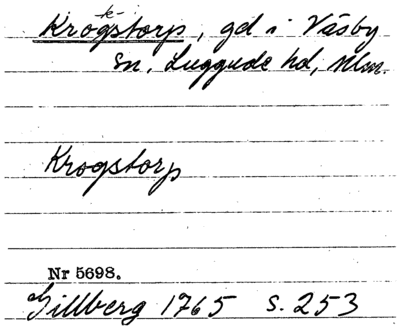 -k-
Krogstorp, gd i Väsby
sn, Luggude hd, Mlm.
Krogstorp
Nr 5698.
Gillberg 1765 s. 253